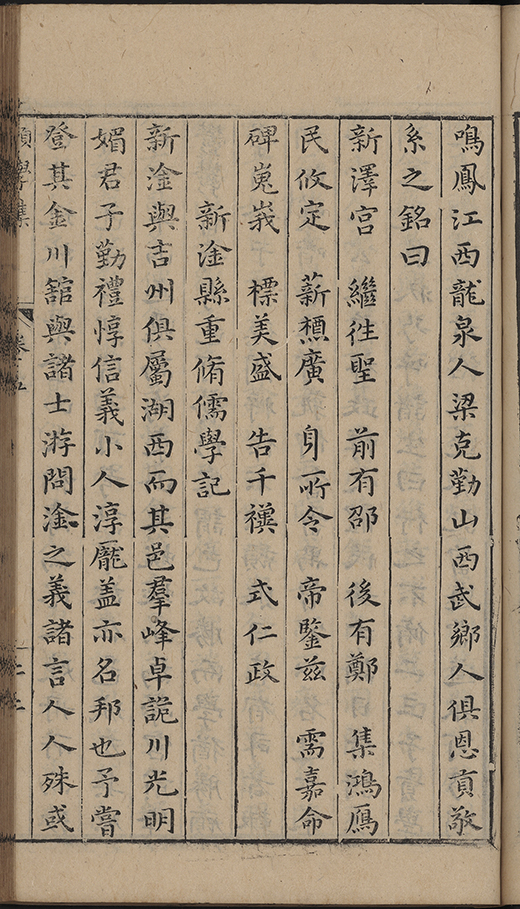 鳴鳳江西龍泉人梁克勤山西武鄉人俱恩貢敬
系之銘曰
新澤宮　繼徃聖　前有邵　後有鄭　集鴻鴈
民攸定　薪槱廣　身所令　帝鑒兹　需嘉命
碑嵬峩　標美盛　告千禩　式仁政
新淦縣重脩儒學記
新淦與吉州俱屬湖西而其邑羣峰卓詭川光明
媚君子勤禮惇信義小人淳龎盖亦名邦也予嘗
登其金川舘與諸士游問淦之義諸言人人殊或
學集
卷